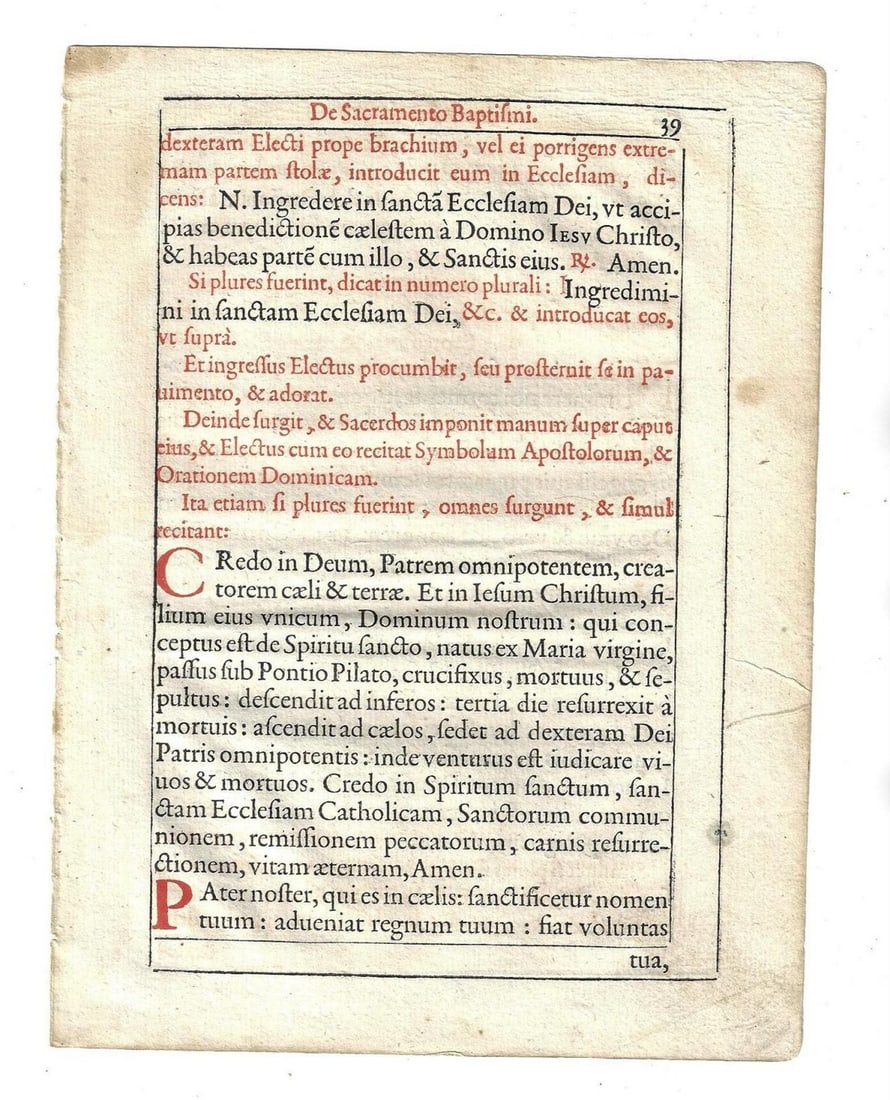 De Sacramento Baptiſmi.
39
dexteram Electi prope brachium, vel ei porrigens extre-
mam partem ſtolæ, introducit eum in Eccleſiam, di-
cens: N. Ingredere in ſanctã Eccleſiam Dei, vt acci-
pias benedictionẽ cæleſtem à Domino IESV Chriſto,
& habeas partẽ cum illo, & Sanctis eius. ℟. Amen.
Si plures fuerint, dicat in numero plurali: Ingredimi-
ni in ſanctam Eccleſiam Dei, &c. & introducat eos,
vt ſuprà.
Et ingreſſus Electus procumbit, ſeu proſternit ſe in pa-
uimento, & adorat.
Deinde ſurgit, & Sacerdos imponit manum ſuper caput
eius, & Electus cum eo recitat Symbolum Apoſtolorum, &
Orationem Dominicam.
Ita etiam ſi plures fuerint, omnes ſurgunt, & ſimul
recitant:
CRedo in Deum, Patrem omnipotentem, crea-
torem cæli & terræ. Et in Ieſum Chriſtum, fi-
lium eius vnicum, Dominum noſtrum: qui con-
ceptus eſt de Spiritu ſancto, natus ex Maria virgine,
paſſus ſub Pontio Pilato, crucifixus, mortuus, & ſe-
pultus: deſcendit ad inferos: tertia die reſurrexit à
mortuis: aſcendit ad cælos, ſedet ad dexteram Dei
Patris omnipotentis: inde venturus eſt iudicare vi-
uos & mortuos. Credo in Spiritum ſanctum, ſan-
ctam Eccleſiam Catholicam, Sanctorum commu-
nionem, remiſſionem peccatorum, carnis reſurre-
ctionem, vitam æternam, Amen.
PAter noſter, qui es in cælis: ſanctificetur nomen
tuum: adueniat regnum tuum: fiat voluntas
tua,